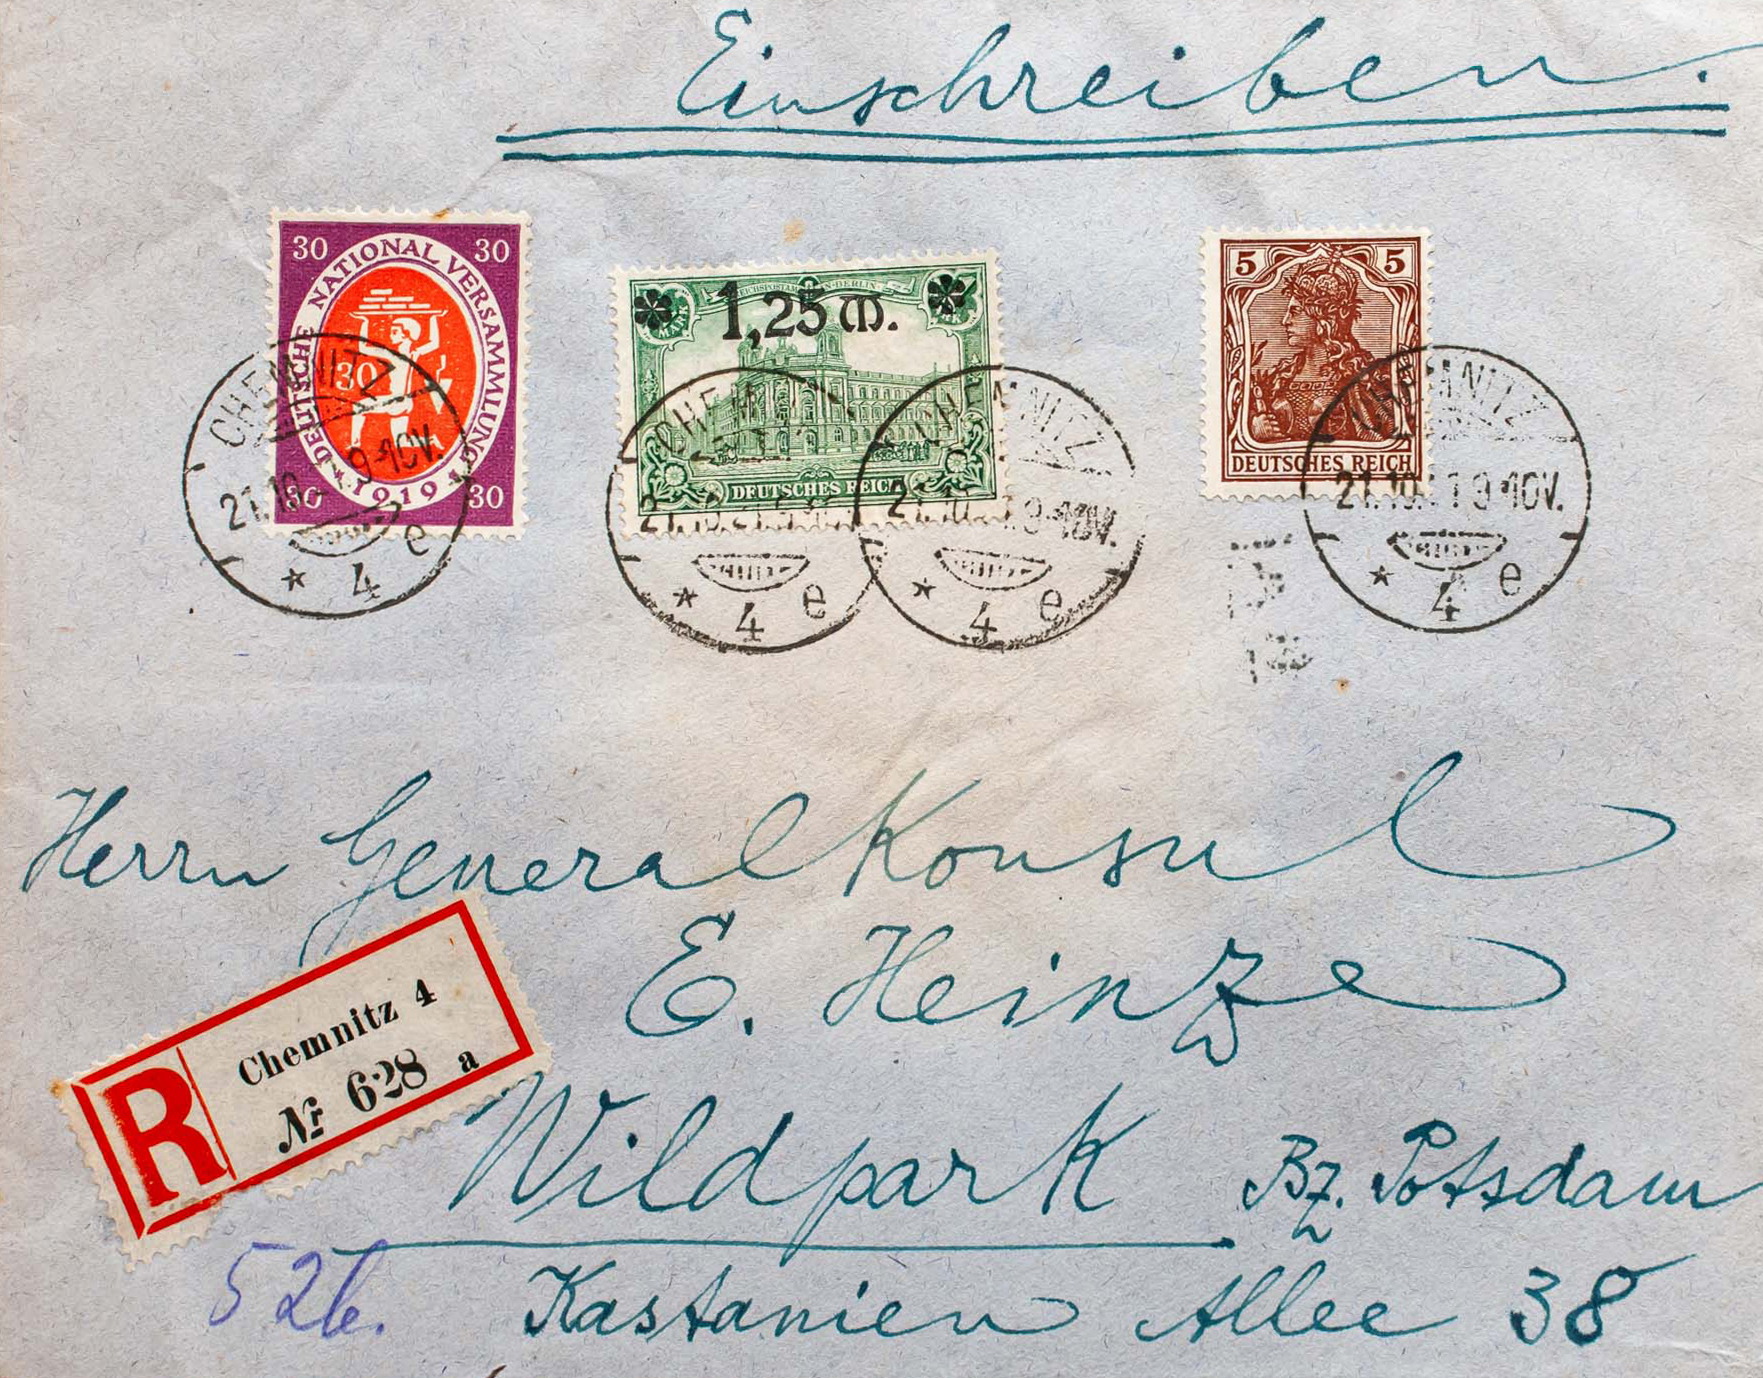 Einschreiben.
30 30
DEUTSCHE NATIONAL VERSAMMLUNG
30
1919
30 30
REICHSPOSTAMT IN BERLIN
1,25 M.
DEUTSCHES REICH
5 5
DEUTSCHES REICH
CHEMNITZ
21.10. 9-10V.
* 4 e
CHEMNITZ
21.10.21
* 4 e
CHEMNITZ
21.10. 9-10V.
* 4 e
CHEMNITZ
21.10. 9-10V.
* 4 e
Herrn General Konsul
E. Heinze
R Chemnitz 4
Nr 628 a
Wildpark Bz. Potsdam
52b.
Kastanien Allee 38